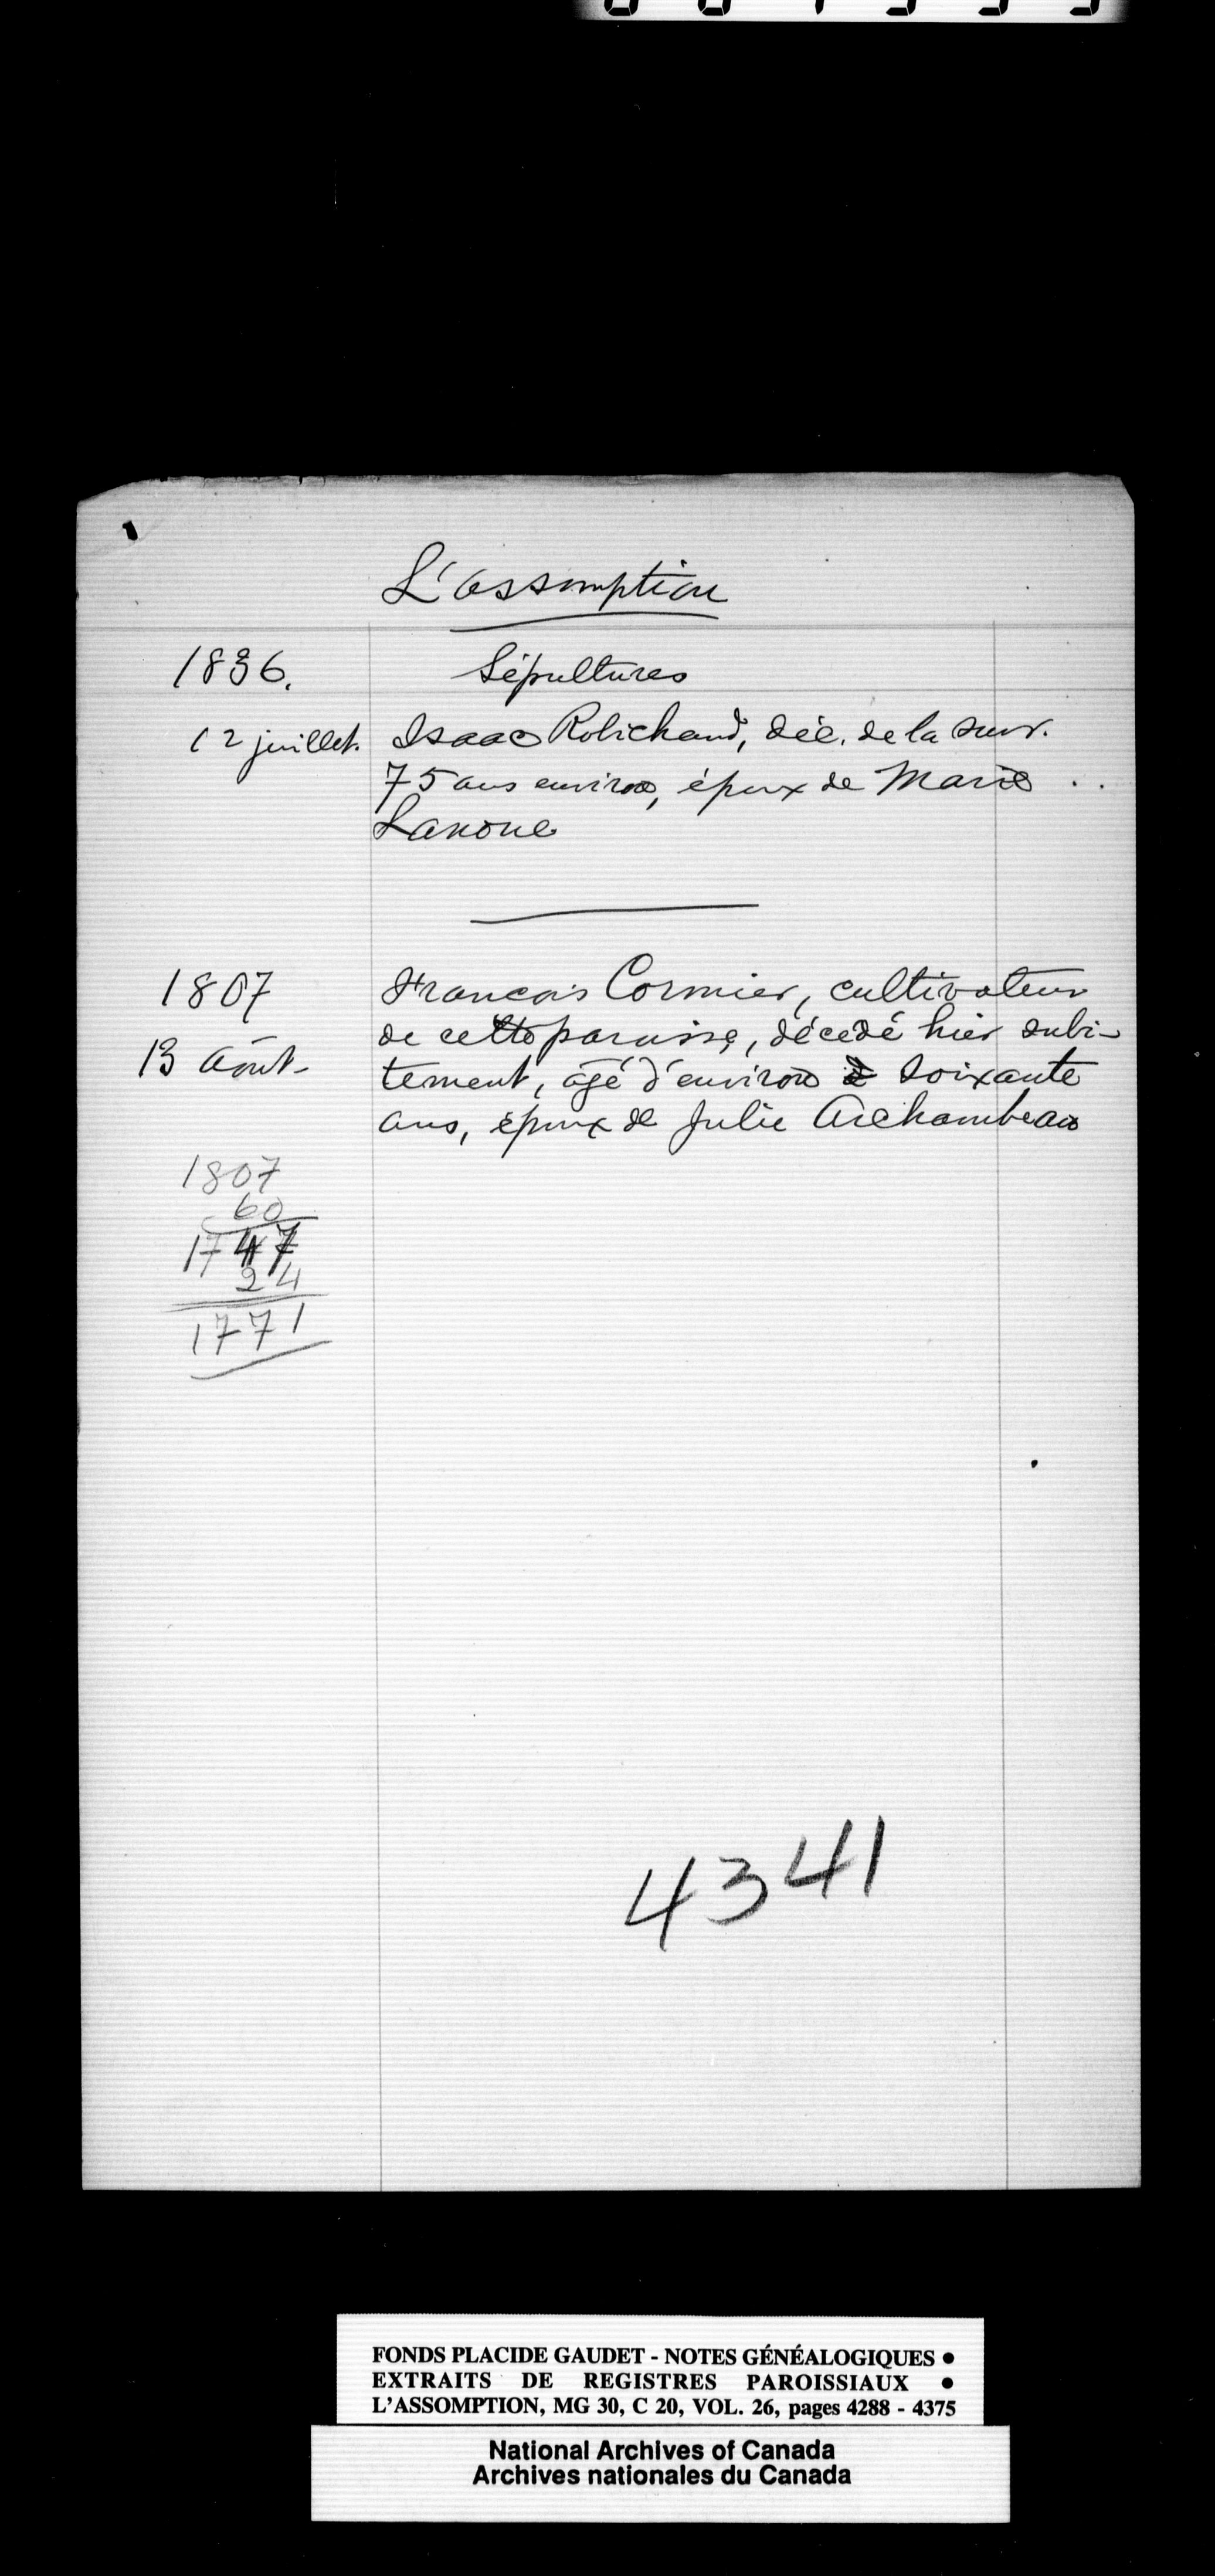 L'assomption
1836. Sépultures
12 juillet. Isaac Robichaud, déc. de la surv.
75 ans environ, époux de Marie
Lanoue
1807 Francois Cormier, cultivateur
de cette paroisse, décédé hier subi-
13 Août- tement, âgé d'environ soixante
ans, époux de Julie Archambeau
1807
60
1747
24
1771
4341
FONDS PLACIDE GAUDET - NOTES GÉNÉALOGIQUES •
EXTRAITS DE REGISTRES PAROISSIAUX •
L'ASSOMPTION, MG 30, C 20, VOL. 26, pages 4288 - 4375
National Archives of Canada
Archives nationales du Canada